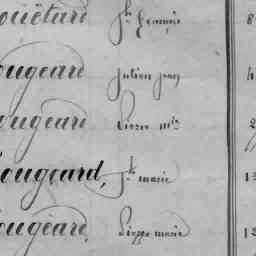 ouëtard Jh françois 8
ougeard julien jean 4
ougeard Pierre mie 2
ougeard, Jh marie 1
ougeard, Pierre marie 13